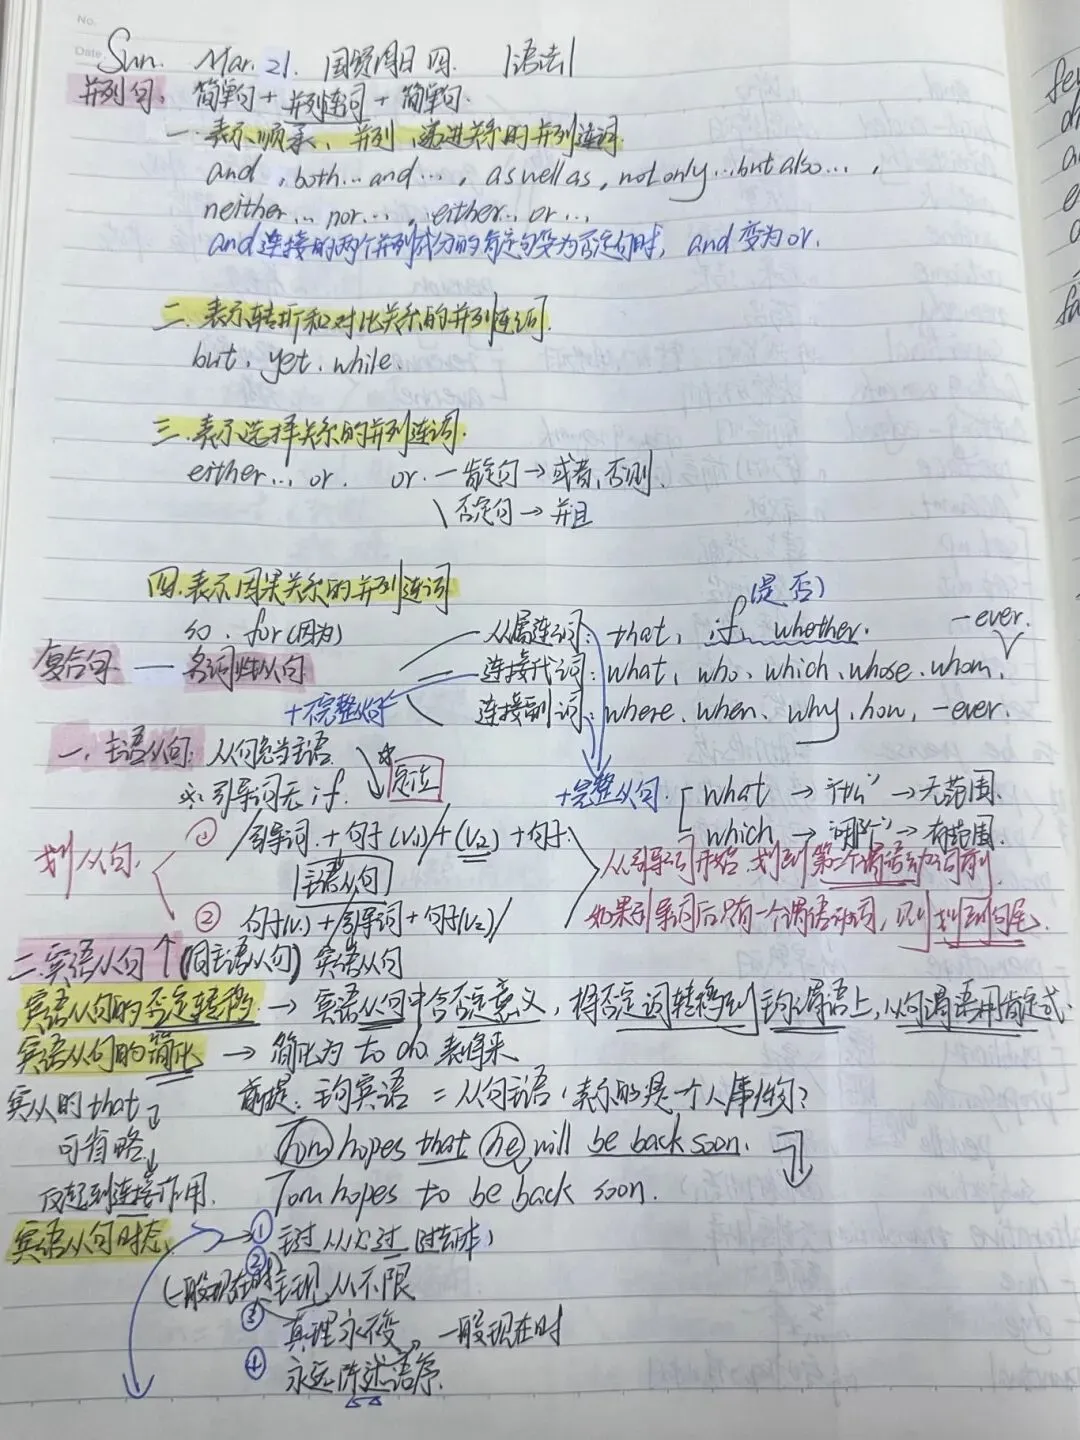 No.
Date
Sun. Mar. 21. 国贸周日四. |语法|
并列句: 简单句 + 并列连词 + 简单句.
一. 表示顺承、并列、递进关系的并列连词.
and, both... and..., as well as, not only... but also...,
neither... nor..., either... or...,
and连接的两个并列成分的肯定句变为否定句时, and 变为 or.
二. 表示转折和对比关系的并列连词.
but. yet. while.
三. 表示选择关系的并列连词.
either... or. or. — 肯定句 → 或者, 否则.
\ 否定句 → 并且
四. 表示因果关系的并列连词
(是否)
so. for (因为)
从属连词: that, if, whether.
-ever.
复合句 — 名词性从句
连接代词: what, who, which, whose, whom,
+不完整从句
连接副词: where. when. why, how, -ever.
一. 主语从句: 从句充当主语.
※ 引导词无 if.
定位
+完整从句.
what → 什么 → 无范围.
which → 哪个 → 有范围.
划从句.
① /引导词 + 句子(V1)/ + (V2) + 句子.
主语从句
从引导词开始, 划到第二个谓语动词前
② 句子(V1) + /引导词 + 句子(V2)/
如果引导词后只有一个谓语动词, 则划到句尾.
二. 宾语从句 ↑ (同主语从句) 宾语从句
宾语从句的否定转移 → 宾语从句中含否定意义, 将否定词转移到主句谓语上, 从句谓语用肯定式.
宾语从句的简化 → 简化为 to do 表将来
宾从的that
前提: 主句宾语 = 从句主语, 表示的是一个人事物?
可省略.
Tom hopes that he will be back soon.
只起到连接作用.
Tom hopes to be back soon.
宾语从句时态
① 主过从必过
(一般现在时)
② 主现从不限
③ 真理永不变, 一般现在时
④ 永远陈述语序.